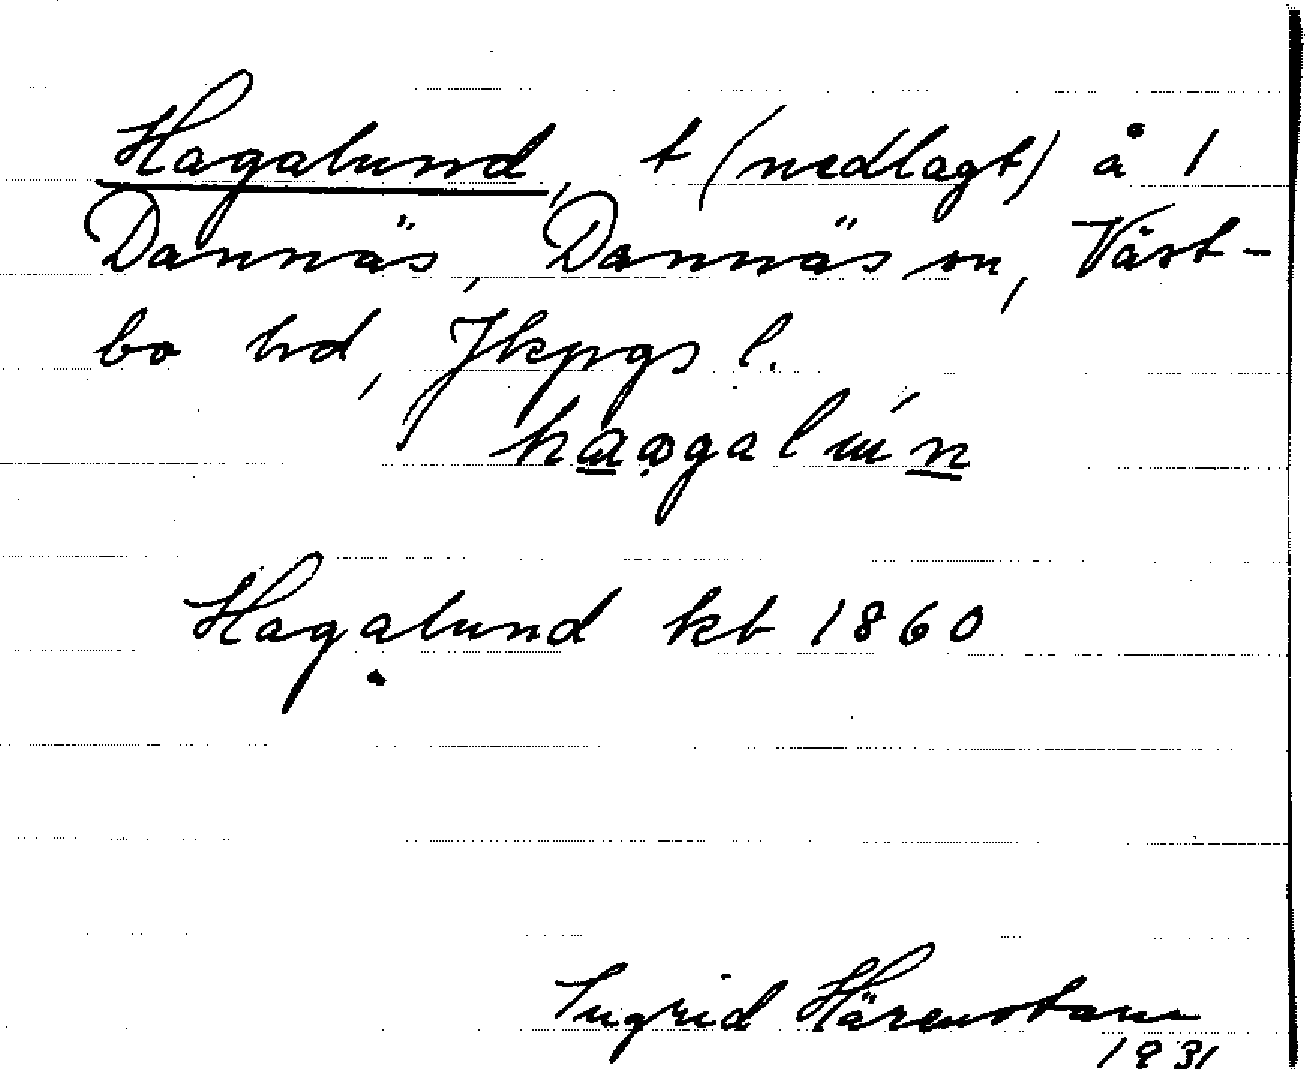 Hagalund, t (nedlagt) å 1
Dannäs, Dannäs sn, Väst-
bo hd, Jkpgs l.
Hagalund kb 1860
Ingrid Härenstam
1931